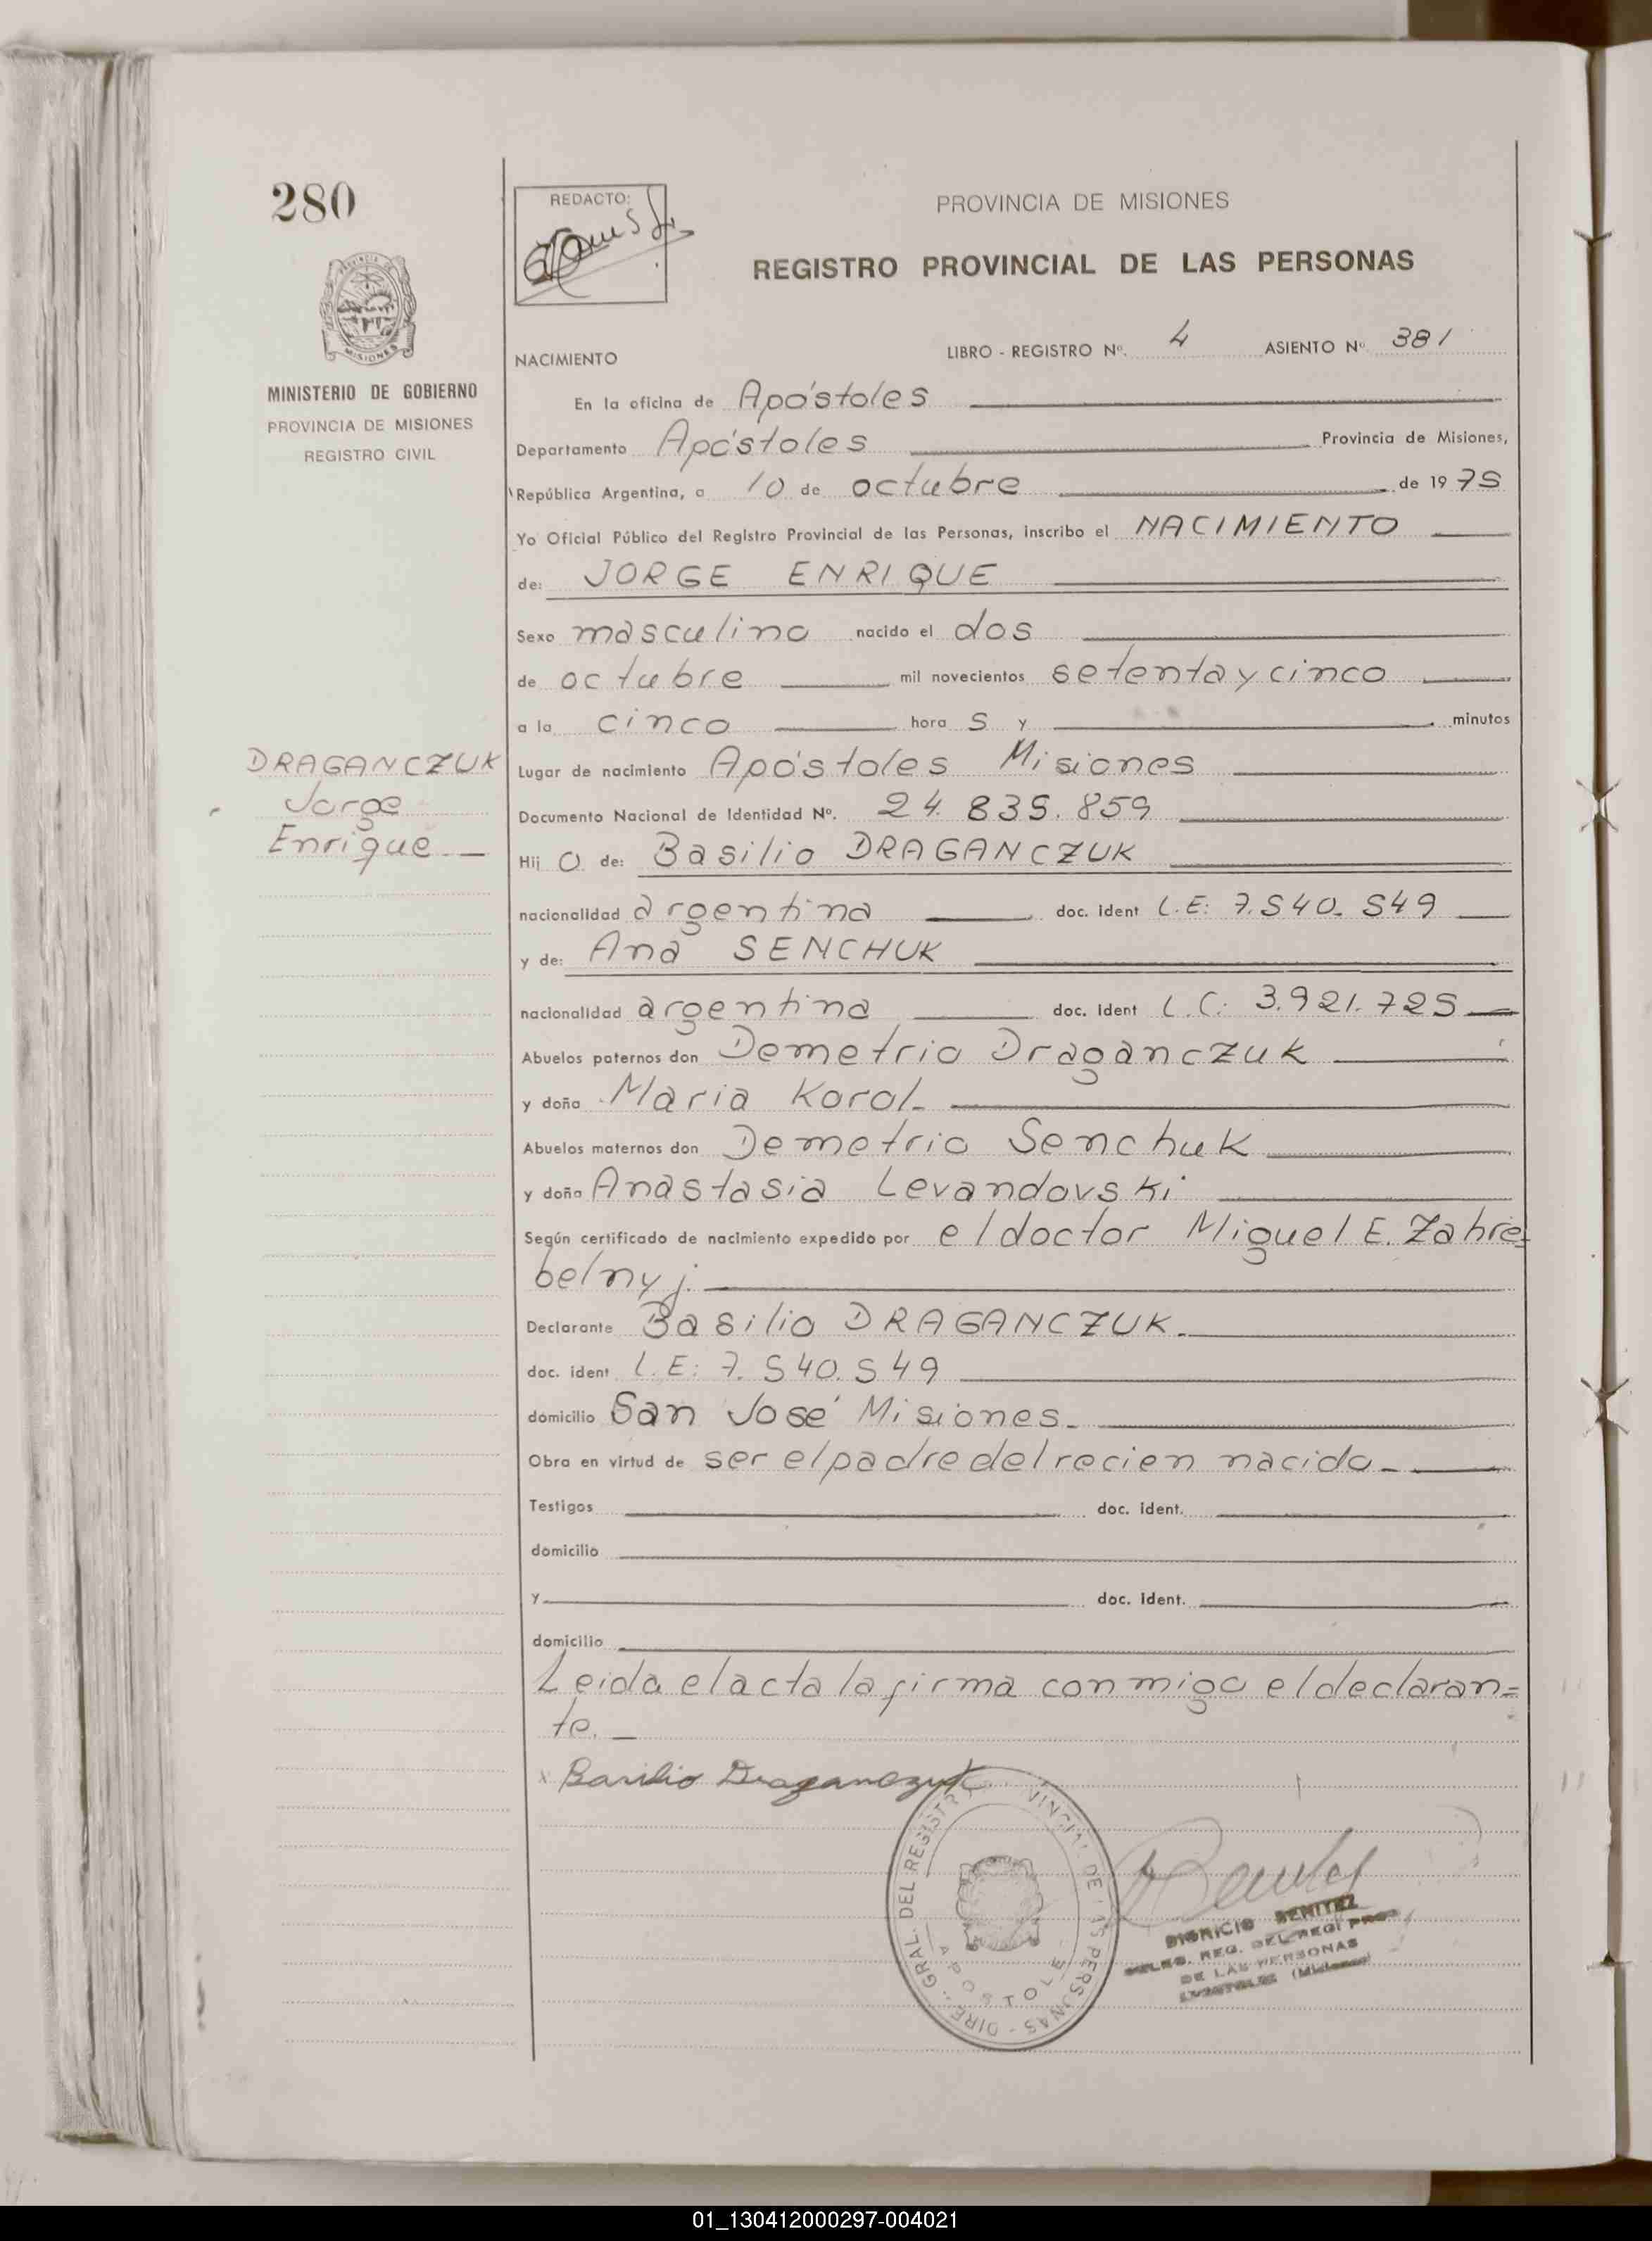 280
REDACTO:
PROVINCIA DE MISIONES
REGISTRO PROVINCIAL DE LAS PERSONAS
MISIONES
MINISTERIO DE GOBIERNO
PROVINCIA DE MISIONES
REGISTRO CIVIL
NACIMIENTO LIBRO - REGISTRO Nº. 4 ASIENTO Nº 381
En la oficina de Apóstoles
Departamento Apóstoles Provincia de Misiones,
República Argentina, a 10 de octubre de 1975
Yo Oficial Público del Registro Provincial de las Personas, inscribo el NACIMIENTO
de: JORGE ENRIQUE
Sexo masculino nacido el dos
de octubre mil novecientos setenta y cinco
a la cinco hora s y minutos
DRAGANCZUK
Jorge
Enrique
Lugar de nacimiento Apóstoles Misiones
Documento Nacional de Identidad Nº. 24.835.859
Hij o de: Basilio DRAGANCZUK
nacionalidad argentina doc. ident L.E: 7.540.549
y de: Ana SENCHUK
nacionalidad argentina doc. ident L.C: 3.921.725
Abuelos paternos don Demetrio Draganczuk
y doña Maria Korol
Abuelos maternos don Demetrio Senchuk
y doña Anastasia Levandovski
Según certificado de nacimiento expedido por el doctor Miguel E. Zahre=
belnyj.
Declarante Basilio DRAGANCZUK.
doc. ident L.E: 7.540.549
domicilio San José Misiones
Obra en virtud de ser el padre del recien nacido
Testigos doc. ident.
domicilio
y doc. ident.
domicilio
Leida el acta la firma conmigo el declaran=
te.
x Basilio Draganczuk
DIRE. GRAL. DEL REGISTR VINCIAL DE LAS PERSONAS
APOSTOLES
DIONICIO BENITEZ
DELEG. REG. DEL REGI PROV
DE LAS PERSONAS
APOSTOLES (Misiones)
01_130412000297-004021